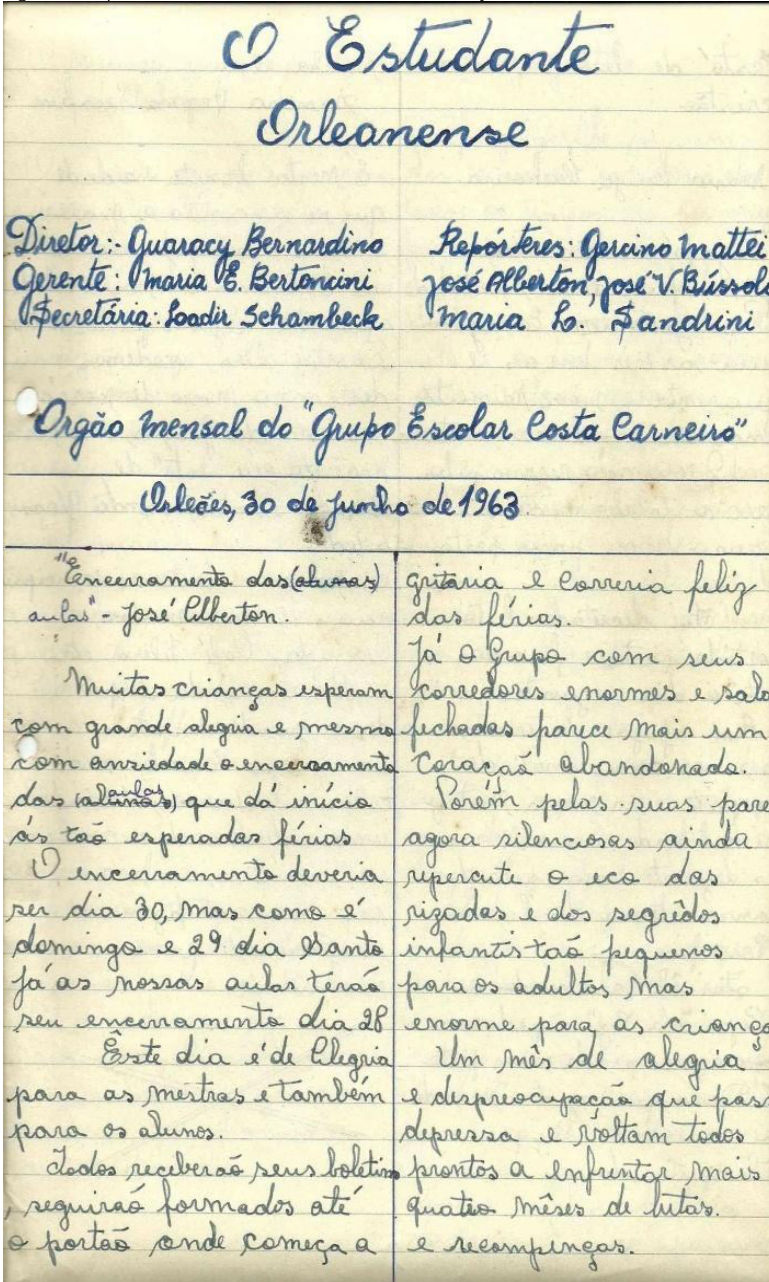 O Estudante
Orleanense
Diretor:- Guaracy Bernardino
Gerente: Maria E. Bertoncini
Secretária: Loadir Schambeck
Repórteres: Gercino Mattei
José Alberton, José V. Bússolo
Maria L. Sandrini
Orgão mensal do "Grupo Escolar Costa Carneiro"
Orleães, 30 de Junho de 1963.
"Encerramento das (alunas)
aulas" - José Alberton.
Muitas crianças esperam
com grande alegria e mesmo
com ansiedade o encerramento
das (alunas) aulas que dá início
ás taõ esperadas férias
O encerramento deveria
ser dia 30, mas como é
domingo e 29 dia Santo
já as nossas aulas teraõ
seu encerramento dia 28
Êste dia é de Alegria
para as mestras e também
para os alunos.
Todos receberaõ seus boletins
, seguiraõ formados até
o portaõ onde começa a
gritaria e correria feliz
das férias.
Já o Grupo com seus
corredores enormes e sala
fechadas parece mais um
coraçaõ abandonado.
Porém pelas suas pare
agora silenciosas ainda
repercute o eco das
rizadas e dos segrêdos
infantis taõ pequenos
para os adultos mas
enorme para as criança
Um mês de alegria
e despreocupaçaõ que pas
depressa e voltam todos
prontos a enfrentar mais
quatro mêses de lutas.
e recompenças.